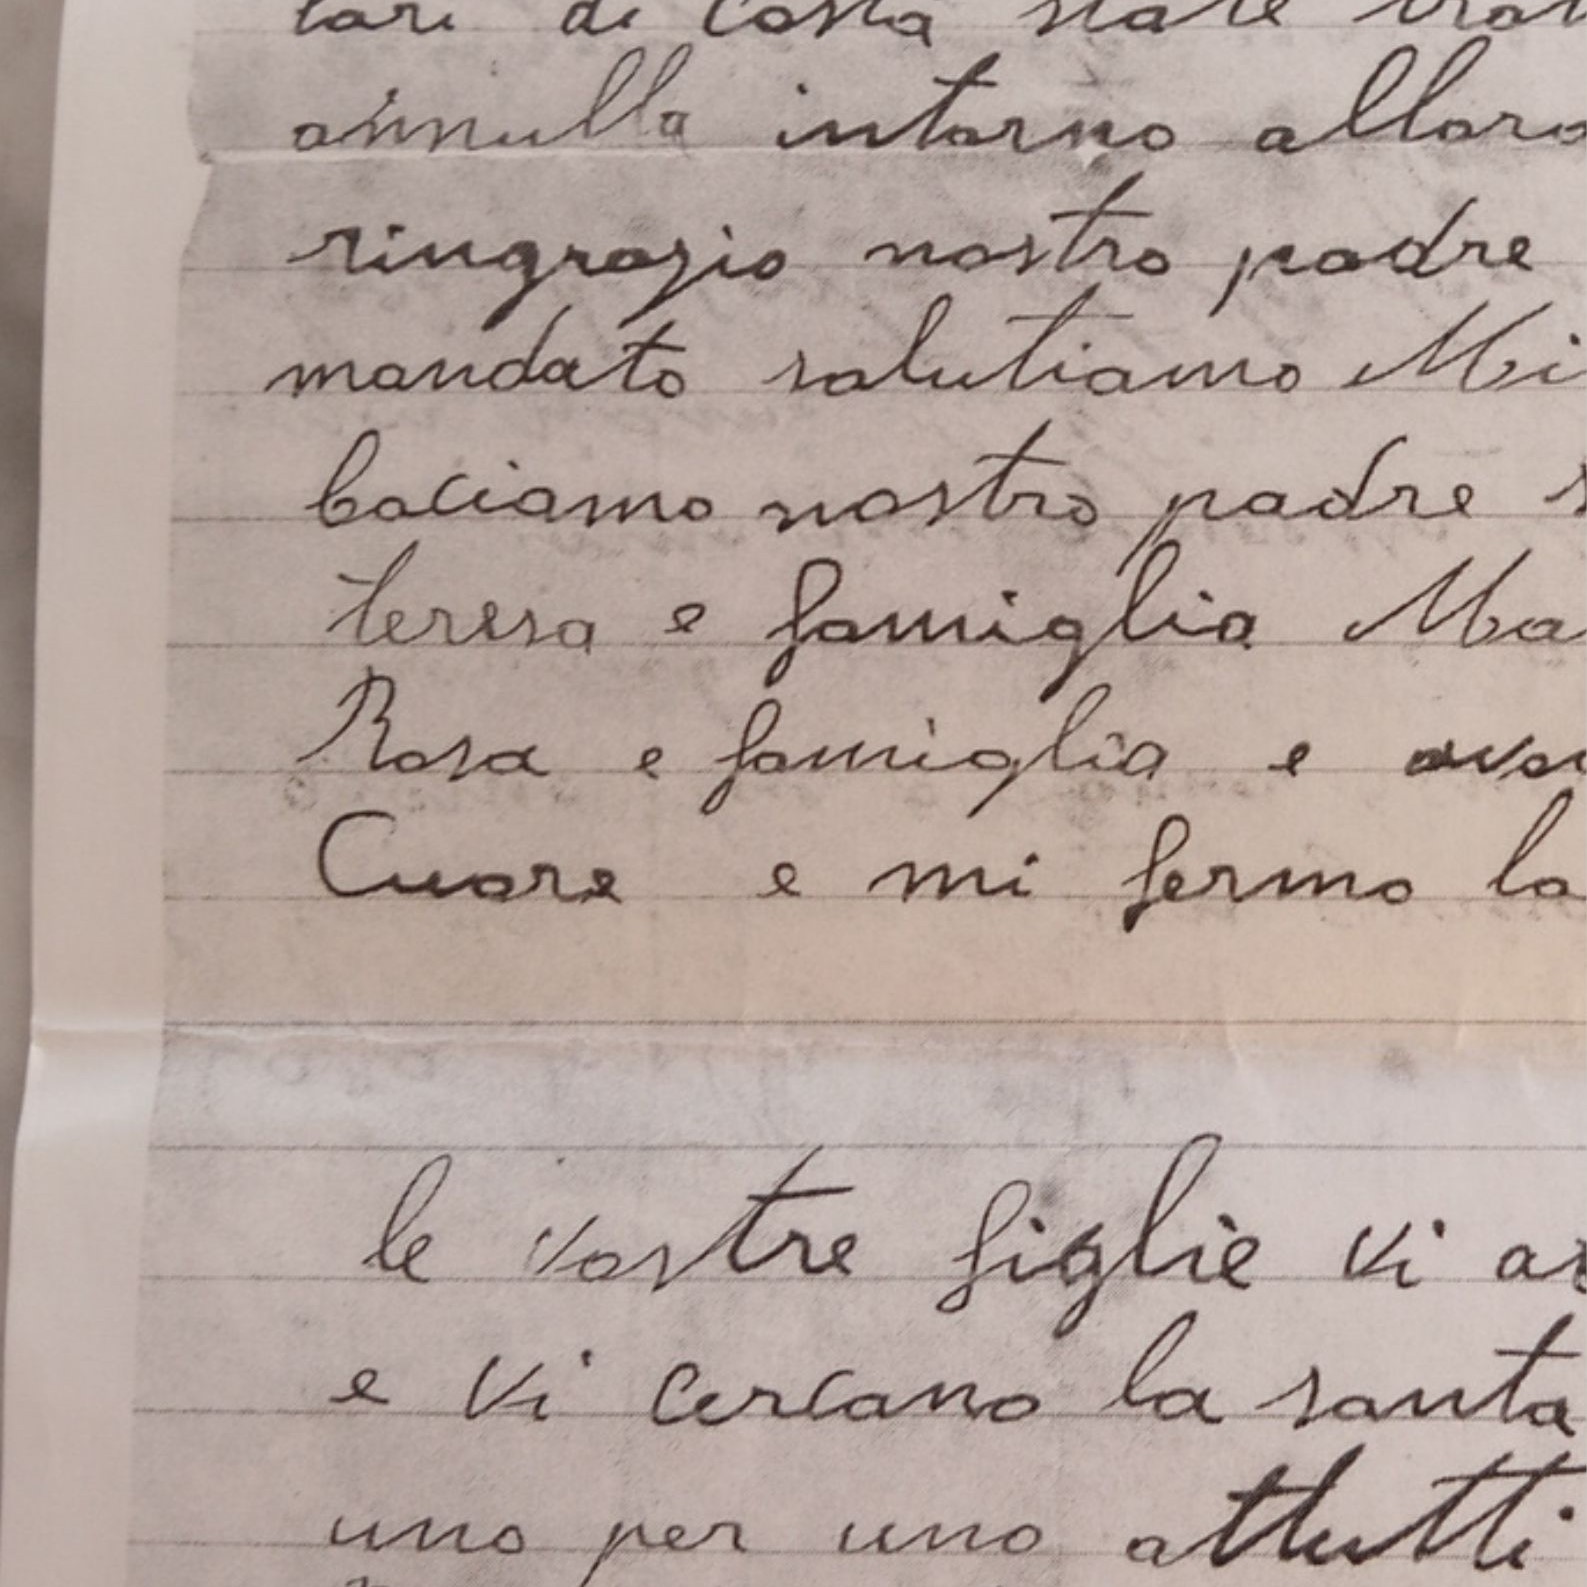 di Costa state
annulla intorno allora
ringrazio nostro padre
mandato salutiamo Mi
baciamo nostro padre s
teresa e famiglia Ma
Rosa e famiglia e
Cuore e mi fermo la
le vostre figlie vi
e vi cercano la santa
uno per uno attutti